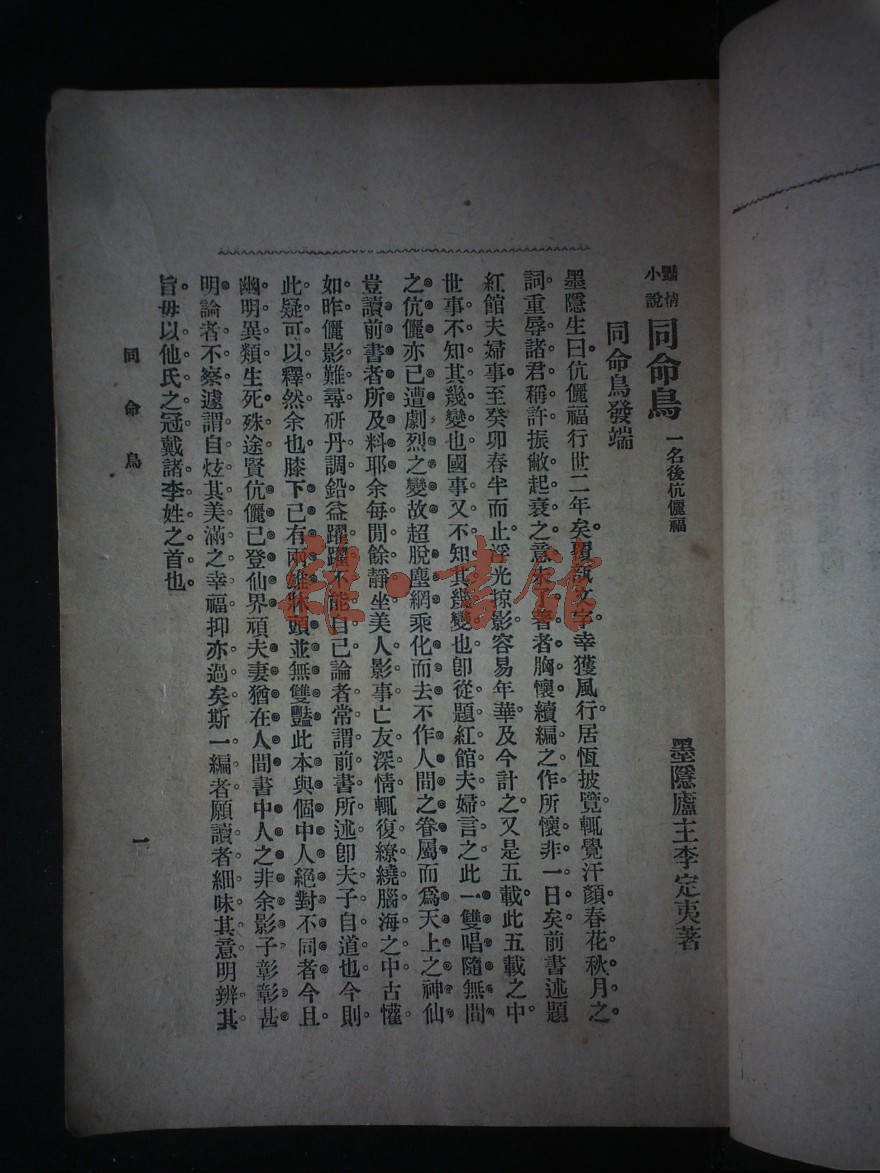 豔情小說 同命鳥 一名後伉儷福
墨隱廬主李定夷著
同命鳥發端
墨隱生曰伉儷福行世二年矣覆瓿文字幸獲風行居恆披覽輒覺汗顏春花秋月之
詞重辱諸君稱許振敝起衰之意失著者胸懷續編之作所懷非一日矣前書述題
紅館夫婦事至癸卯春半而止浮光掠影容易年華及今計之又是五載此五載之中
世事不知其幾變也國事又不知其幾變也卽從題紅館夫婦言之此一雙唱隨無間
之伉儷亦已遭劇烈之變故超脫塵網乘化而去不作人間之眷屬而爲天上之神仙
豈讀前書者所及料耶余每閒餘靜坐美人影事亡友深情輒復繚繞腦海之中古懽
如昨儷影難尋研丹調鉛益躍躍不能自已論者常謂前書所述卽夫子自道也今則
此疑可以釋然余也膝下已有兩雛牀頭並無雙豔此本與個中人絕對不同者今且
幽明異類生死殊途賢伉儷已登仙界頑夫妻猶在人間書中人之非余影子彰彰甚
明論者不察遽謂自炫其美滿之幸福抑亦過矣斯一編者願讀者細味其意明辨其
旨毋以他氏之冠戴諸李姓之首也
同命鳥
一
雜·書館